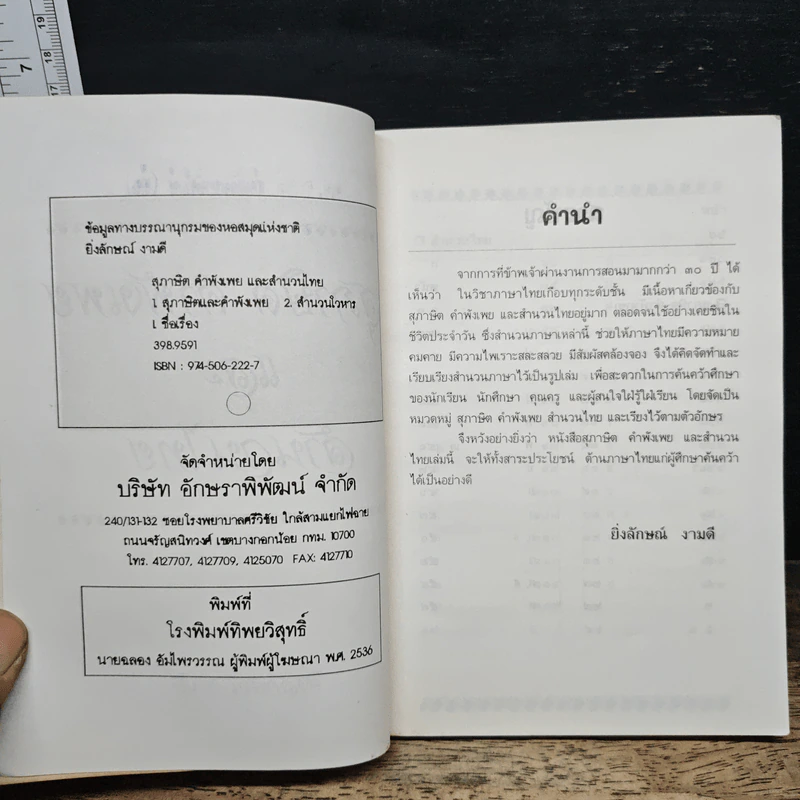 19
18
17
7
ข้อมูลทางบรรณานุกรมของหอสมุดแห่งชาติ
ยิ่งลักษณ์ งามดี
สุภาษิต คำพังเพย และสำนวนไทย
1. สุภาษิตและคำพังเพย 2. สำนวนโวหาร
I. ชื่อเรื่อง
398.9591
ISBN : 974-506-222-7
จัดจำหน่ายโดย
บริษัท อักษราพิพัฒน์ จำกัด
240/131-132 ซอยโรงพยาบาลศรีวิชัย ใกล้สามแยกไฟฉาย
ถนนจรัญสนิทวงศ์ เขตบางกอกน้อย กทม. 10700
โทร. 4127707, 4127709, 4125070 FAX: 4127710
พิมพ์ที่
โรงพิมพ์ทิพยวิสุทธิ์
นายฉลอง อัมไพรวรรณ ผู้พิมพ์ผู้โฆษณา พ.ศ. 2536
คำนำ
จากการที่ข้าพเจ้าผ่านงานการสอนมามากกว่า ๓๐ ปี ได้
เห็นว่า ในวิชาภาษาไทยเกือบทุกระดับชั้น มีเนื้อหาเกี่ยวข้องกับ
สุภาษิต คำพังเพย และสำนวนไทยอยู่มาก ตลอดจนใช้อย่างเคยชินใน
ชีวิตประจำวัน ซึ่งสำนวนภาษาเหล่านี้ ช่วยให้ภาษาไทยมีความหมาย
คมคาย มีความไพเราะสละสลวย มีสัมผัสคล้องจอง จึงได้คิดจัดทำและ
เรียบเรียงสำนวนภาษาไว้เป็นรูปเล่ม เพื่อสะดวกในการค้นคว้าศึกษา
ของนักเรียน นักศึกษา คุณครู และผู้สนใจใฝ่รู้ใฝ่เรียน โดยจัดเป็น
หมวดหมู่ สุภาษิต คำพังเพย สำนวนไทย และเรียงไว้ตามตัวอักษร
จึงหวังอย่างยิ่งว่า หนังสือสุภาษิต คำพังเพย และสำนวน
ไทยเล่มนี้ จะให้ทั้งสาระประโยชน์ ด้านภาษาไทยแก่ผู้ศึกษาค้นคว้า
ได้เป็นอย่างดี
ยิ่งลักษณ์ งามดี